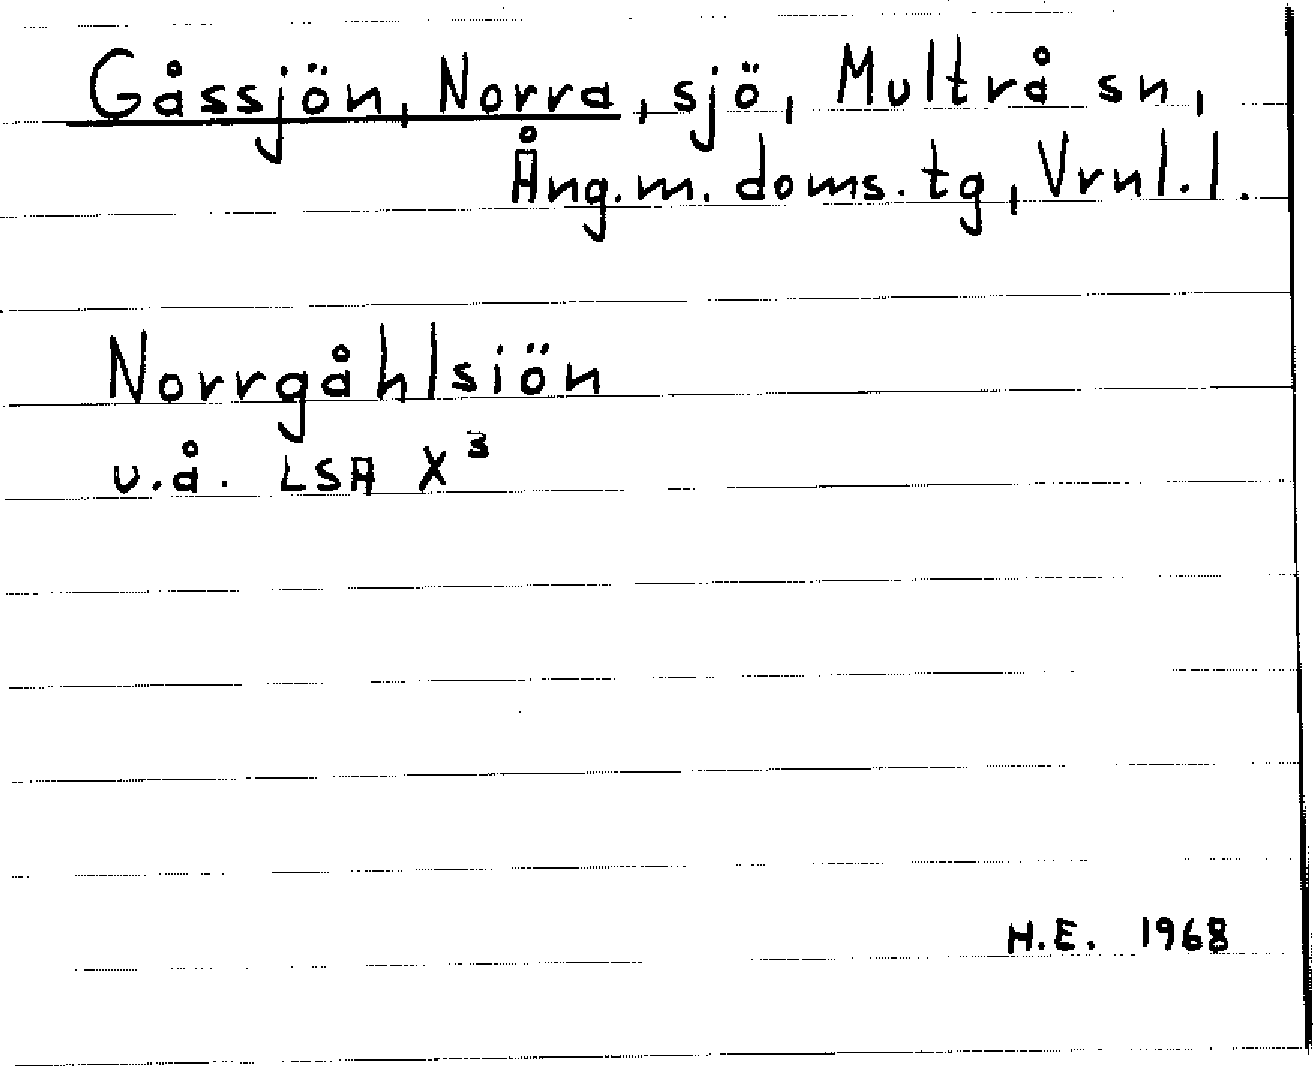 Gåssjön, Norra, sjö, Multrå sn,
Ång.m. doms.tg, Vrnl.l.
Norrgåhlsiön
u.å. LSA X³
H.E. 1968